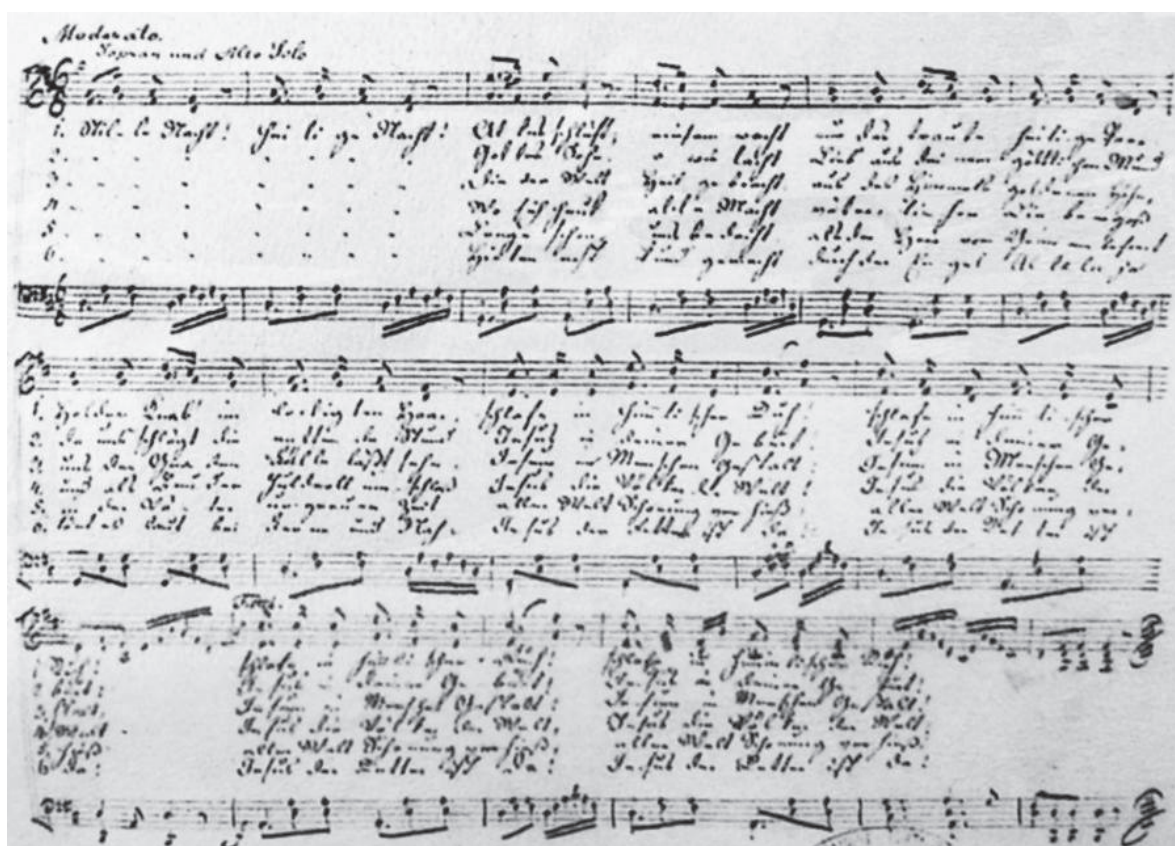 Moderato.
Sopran und Alto Solo
1. Stil le Nacht! Hei li ge Nacht! Al les schläft, einsam wacht nur das traute heilige Paar
2. Gottes Sohn, o wie lacht Lieb aus deinem göttlichen Mund
3. Die der Welt Heil gebracht aus des Himmels goldenen Höhn
4. Wo sich heut alle Macht
5. Lange schon uns bedacht als der Herr vom
6. Hirten Kund gemacht durch der Engel Al le lu ja
1. Holder Knab im lockigten Haar, schlafe in himmlischer Ruh! schlafe in himmlischer
2. da uns schlägt die rettende Stund Jesus in deiner Geburt! Jesus in deiner Ge
3. uns der Gnaden Fülle läßt sehn Jesum in Menschen Gestalt! Jesum in Menschen Ge
4. und als Bruder huldvoll umschloß Jesus die Völker der Welt! Jesus die Völker der
5. in der Väter urgrauer Zeit aller Welt Schonung verhieß! aller Welt Schonung ver
6. tönt es laut bei Ferne und Nah Jesus der Retter ist da! Jesus der Retter ist
1. Ruh! schlafe in himmlischer Ruh! schlafe in himmlischer Ruh!
2. burt! Jesus in deiner Geburt! Jesus in deiner Geburt!
3. stalt! Jesum in Menschen Gestalt! Jesum in Menschen Gestalt!
4. Welt Jesus die Völker der Welt. Jesus die Völker der Welt.
5. hieß aller Welt Schonung verhieß. aller Welt Schonung verhieß.
6. da! Jesus der Retter ist da! Jesus der Retter ist da!